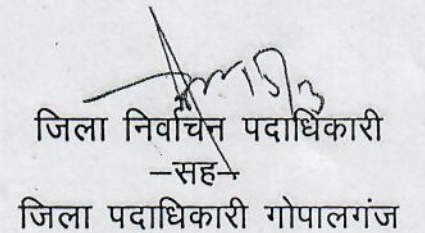 जिला निर्वाचन पदाधिकारी
–सह–
जिला पदाधिकारी गोपालगंज